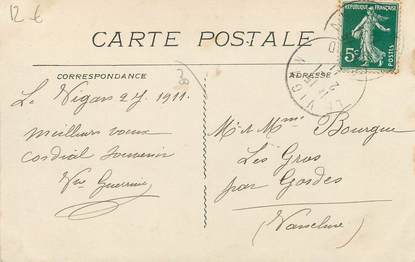 12 €
CARTE POSTALE
RÉPUBLIQUE FRANÇAISE
5c
POSTES
CORRESPONDANCE
ADRESSE
LE VIGAN
Le Vigan 2 J. 1911.
Meilleurs voeux
cordial souvenir
Vve Guerrine
Mr & Mme Bourgue
Les Gros
par Gordes
(Vaucluse)